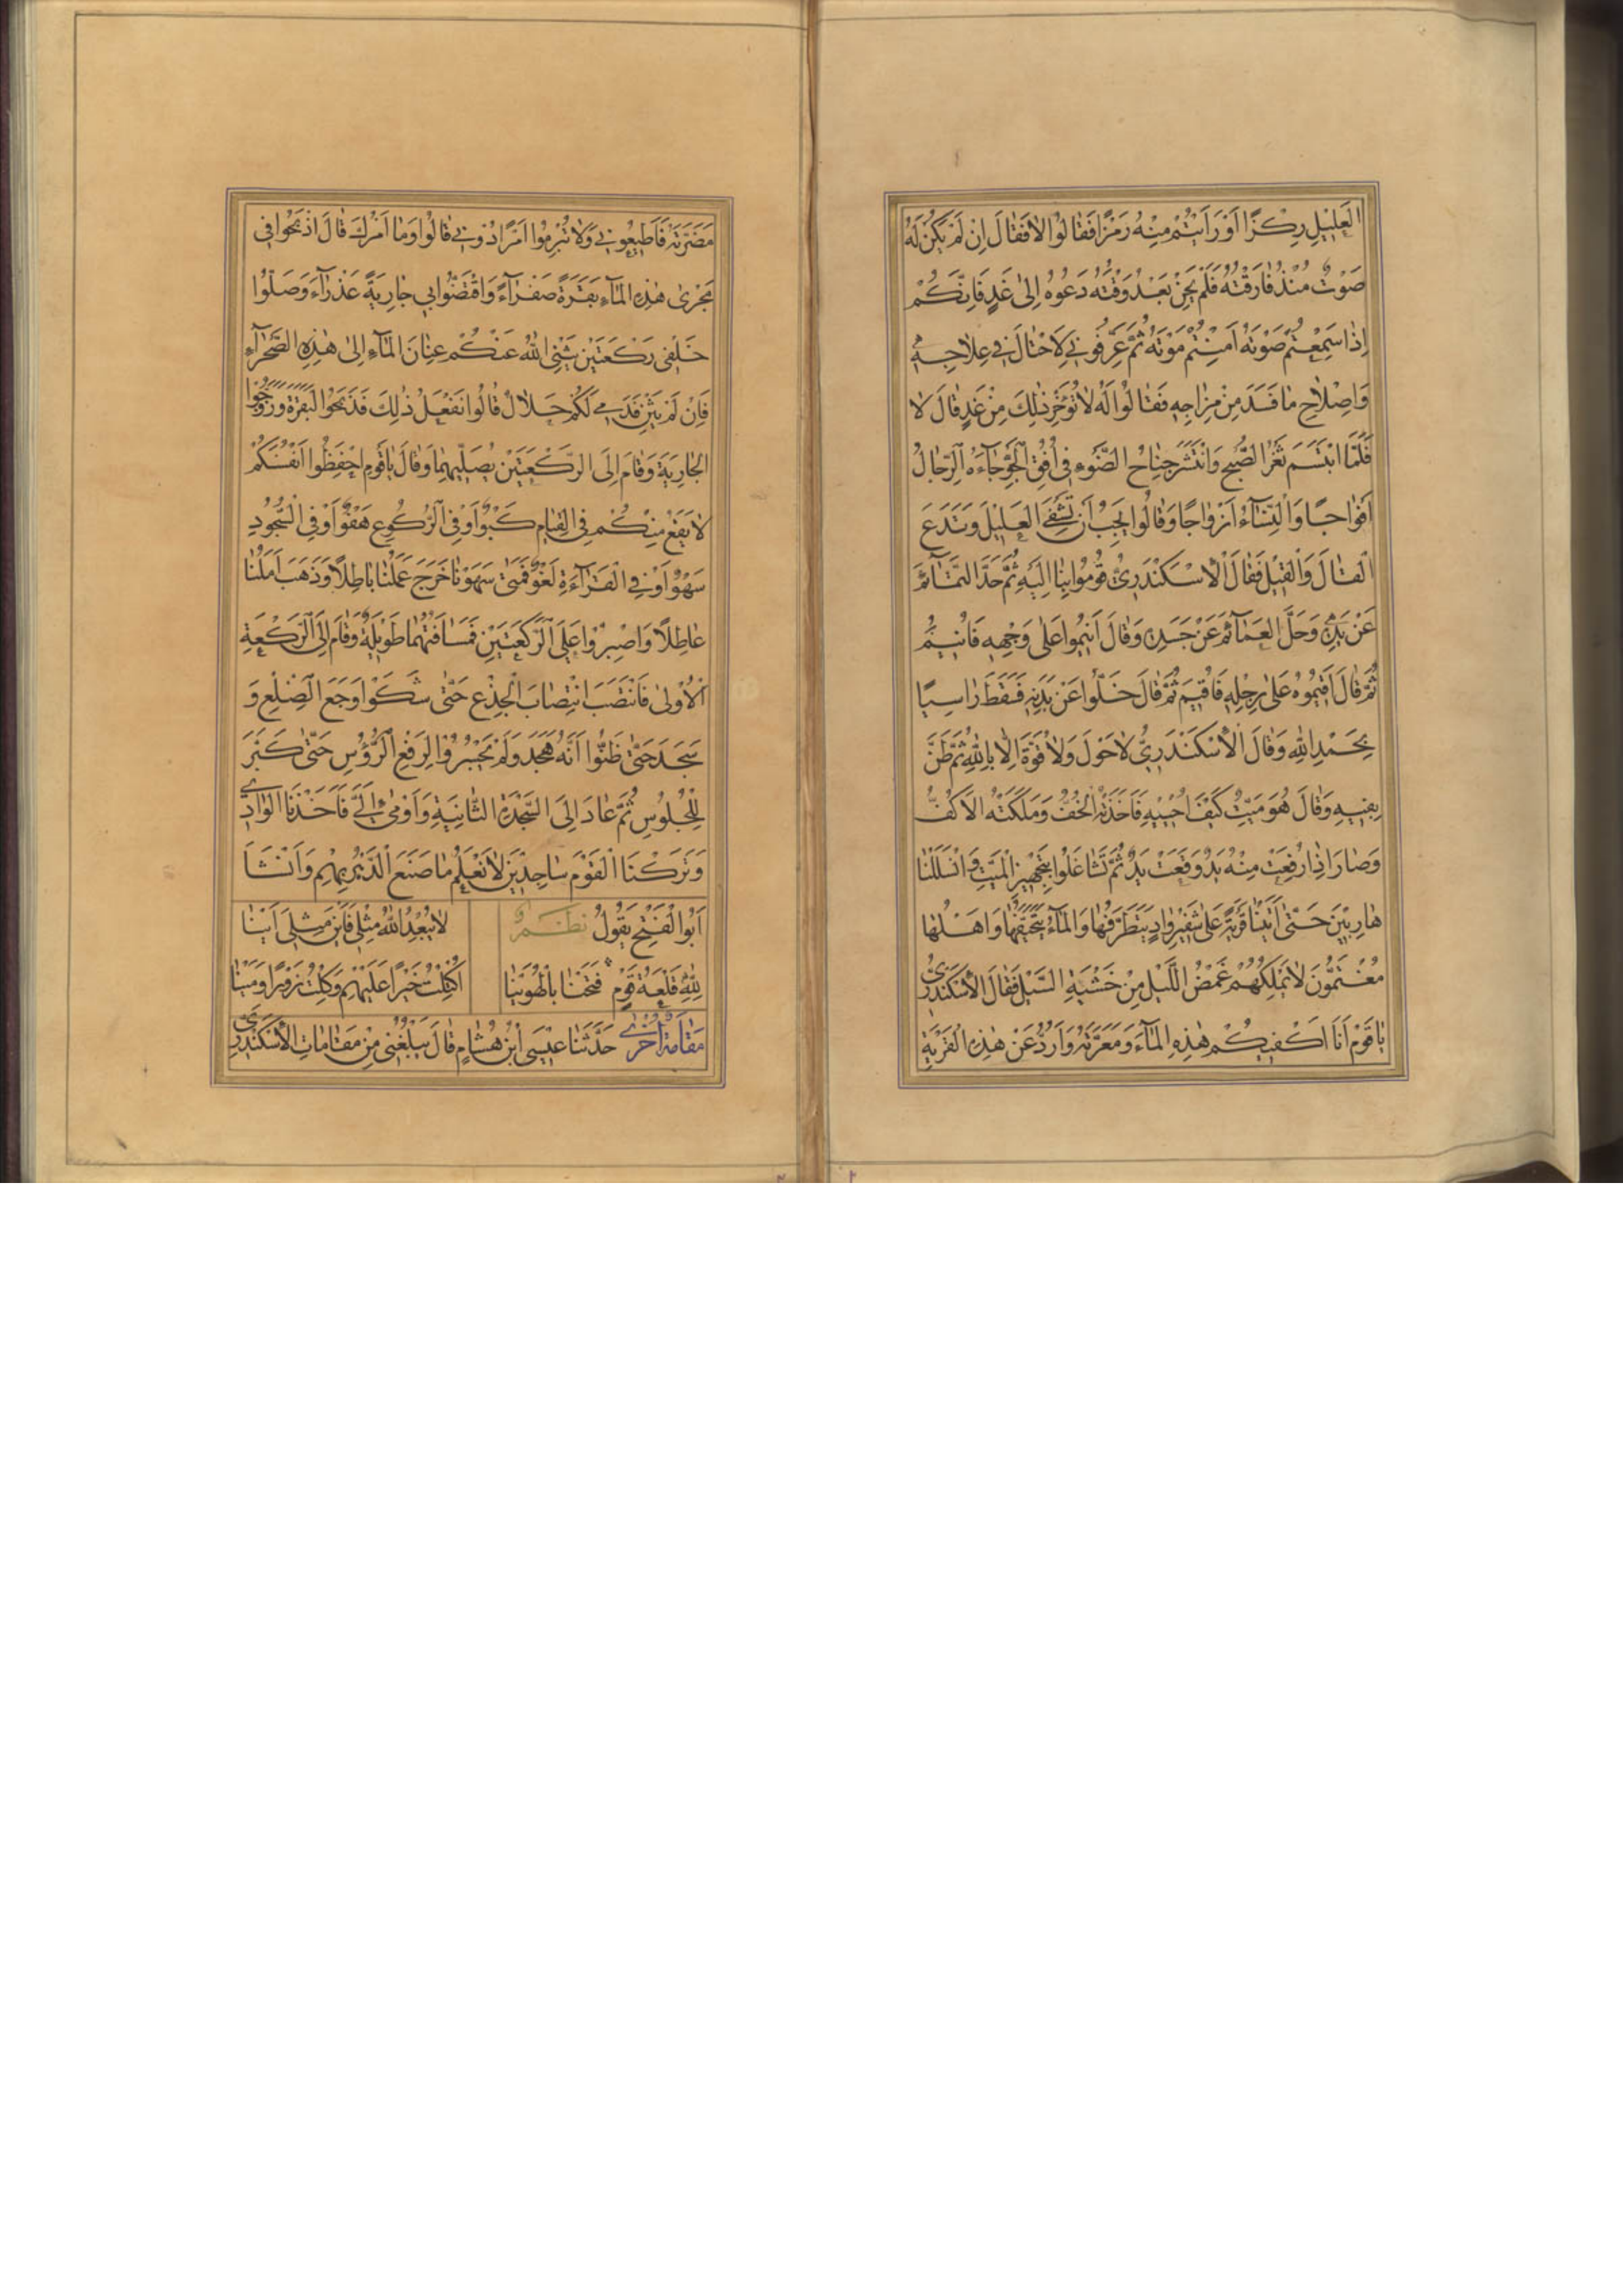 العَلِيْلِ رِكْزًا اَوْ رَاَيْتُمْ مِنْهُ رَمْزًا فَقَالُوْا لَا فَقَالَ اِنْ لَمْ يَكُنْ لَهُ
صَوْتٌ مُنْذُ فَارَقْتُهُ فَلَمْ يَحِنْ بَعْدُ وَقْتُهُ دَعُوْهُ اِلَى غَدٍ فَاِنَّكُمْ
اِذَا سَمِعْتُمْ صَوْتَهُ اَمِنْتُمْ مَوْتَهُ ثُمَّ عَرِّفُوْنِي لِاَحْتَالَ فِي عِلَاجِهِ
وَاِصْلَاحِ مَا فَسَدَ مِنْ مِزَاجِهِ فَقَالُوْا لَهُ لَا تُؤَخِّرْ ذٰلِكَ مِنْ غَدٍ قَالَ لَا
فَلَمَّا ابْتَسَمَ ثَغْرُ الصُّبْحِ وَانْتَشَرَ جَنَاحُ الضَّوْءِ فِي اُفُقِ الْجَوِّ جَاءَهُ الرِّجَالُ
اَفْوَاجًا وَالنِّسَاءُ اَزْوَاجًا وَقَالُوْا نُحِبُّ اَنْ تَشْفِيَ العَلِيْلَ وَتَدَعَ
القَالَ وَالْقِيْلَ فَقَالَ الْاِسْكَنْدَرِيُّ قُوْمُوا بِنَا اِلَيْهِ ثُمَّ حَدَّ التَّمَائِمَ
عَنْ يَدِهِ وَحَلَّ العَمَائِمَ عَنْ جَسَدِهِ وَقَالَ اَنِيْمُوا عَلَى وَجْهِهِ فَاُنِيْمَ
ثُمَّ قَالَ اَقِيْمُوْهُ عَلَى رِجْلِهِ فَاُقِيْمَ ثُمَّ قَالَ خَلُّوا عَنْ يَدَيْهِ فَسَقَطَ رَاسِيًا
بِحَمْدِ اللّٰهِ وَقَالَ الْاَسْكَنْدَرِيُّ لَا حَوْلَ وَلَا قُوَّةَ اِلَّا بِاللّٰهِ ثُمَّ طَنَّ
بِفِيْهِ وَقَالَ هُوَ مَيِّتٌ كَيْفَ اُحْيِيْهِ فَاَخَذَتْهُ الْخُفُّ وَمَلَكَتْهُ الْاَكُفُّ
وَصَارَ اِذَا رُفِعَتْ مِنْهُ يَدٌ وَقَعَتْ يَدٌ ثُمَّ تَشَاغَلُوْا بِتَجْهِيْزِ الْمَيِّتِ وَانْسَلَلْنَا
هَارِبِيْنَ حَتَّى اَتَيْنَا قَرْيَةً عَلَى شَفِيْرِ وَادٍ يَتَطَرَّفُهَا وَالْمَاءُ يَتَحَيَّفُهَا وَاَهْلُهَا
مُغْتَمُّوْنَ لَا يَمْلِكُهُمْ غَمْضُ اللَّيْلِ مِنْ خَشْيَةِ السَّيْلِ فَقَالَ الْاَسْكَنْدَرِيُّ
يَا قَوْمِ اَنَا اَكْفِيْكُمْ هٰذِهِ الْمَاءَ وَمَعَرَّتَهُ وَاَرُدُّ عَنْ هٰذِهِ القَرْيَةِ
مَضَرَّتَهُ فَاَطِيْعُوْنِي وَلَا تُبْرِمُوا اَمْرًا دُوْنِي قَالُوْا وَمَا اَمْرُكَ قَالَ اذْبَحُوا فِي
مَجْرَى هٰذِهِ الْمَاءِ بَقَرَةً صَفْرَاءَ وَاقْتَضُّوا بِي جَارِيَةً عَذْرَاءَ وَصَلُّوْا
خَلْفِي رَكْعَتَيْنِ يَثْنِي اللّٰهُ عَنْكُمْ عِنَانَ الْمَاءِ اِلَى هٰذِهِ الصَّحْرَاءِ
فَاِنْ لَمْ يَنْثَنِ فَدَمِي لَكُمْ حَلَالٌ قَالُوْا نَفْعَلُ ذٰلِكَ فَذَبَحُوا الْبَقَرَةَ وَزَوَّجُوا
الْجَارِيَةَ وَقَامَ اِلَى الرَّكْعَتَيْنِ يُصَلِّيْهِمَا وَقَالَ يَا قَوْمِ احْفَظُوا اَنْفُسَكُمْ
لَا يَقَعْ مِنْكُمْ فِي القِيَامِ كَبْوٌ اَوْ فِي الرُّكُوْعِ هَفْوٌ اَوْ فِي السُّجُوْدِ
سَهْوٌ اَوْ فِي الْقِرَاءَةِ لَغْوٌ فَمَتَى سَهَوْنَا خَرَجَ عَمَلُنَا بَاطِلًا وَذَهَبَ اَمَلُنَا
عَاطِلًا وَاصْبِرُوْا عَلَى الرَّكْعَتَيْنِ فَمَسَافَتُهُمَا طَوِيْلَةٌ وَقَامَ اِلَى الرَّكْعَةِ
الْاُوْلَى فَانْتَصَبَ انْتِصَابَ الْجِذْعِ حَتَّى شَكَوْا وَجَعَ الضِّلْعِ وَ
سَجَدَ حَتَّى ظَنُّوا اَنَّهُ هَجَدَ وَلَمْ يَجْسُرُوْا لِرَفْعِ الرُّؤُسِ حَتَّى كَبَّرَ
لِلْجُلُوْسِ ثُمَّ عَادَ اِلَى السَّجْدَةِ الثَّانِيَةِ وَاَوْمَى اِلَيَّ فَاَخَذْنَا الوَادِي
وَتَرَكْنَا الْقَوْمَ سَاجِدِيْنَ لَا نَعْلَمُ مَا صَنَعَ الدَّهْرُ بِهِمْ وَاَنْشَاَ
اَبُو الْفَتْحِ يَقُوْلُ نظم لَا يُبْعِدُ اللّٰهُ مِثْلِي فَاَيْنَ مِثْلِي اَيْنَا
لِلّٰهِ قَلْعَةُ قَوْمٍ فَتَحْنَا بِالْهُوَيْنَا اَكْتَلْتُ خَيْرًا عَلَيْهِمْ وَكِلْتُ زُوْرًا وَمَيْنَا
مَقَامَةٌ اُخْرَى حَدَّثَنَا عِيْسَى ابْنُ هِشَامٍ قَالَ يَبْلُغُنِي مِنْ مَقَامَاتِ الْاَسْكَنْدَرِيِّ